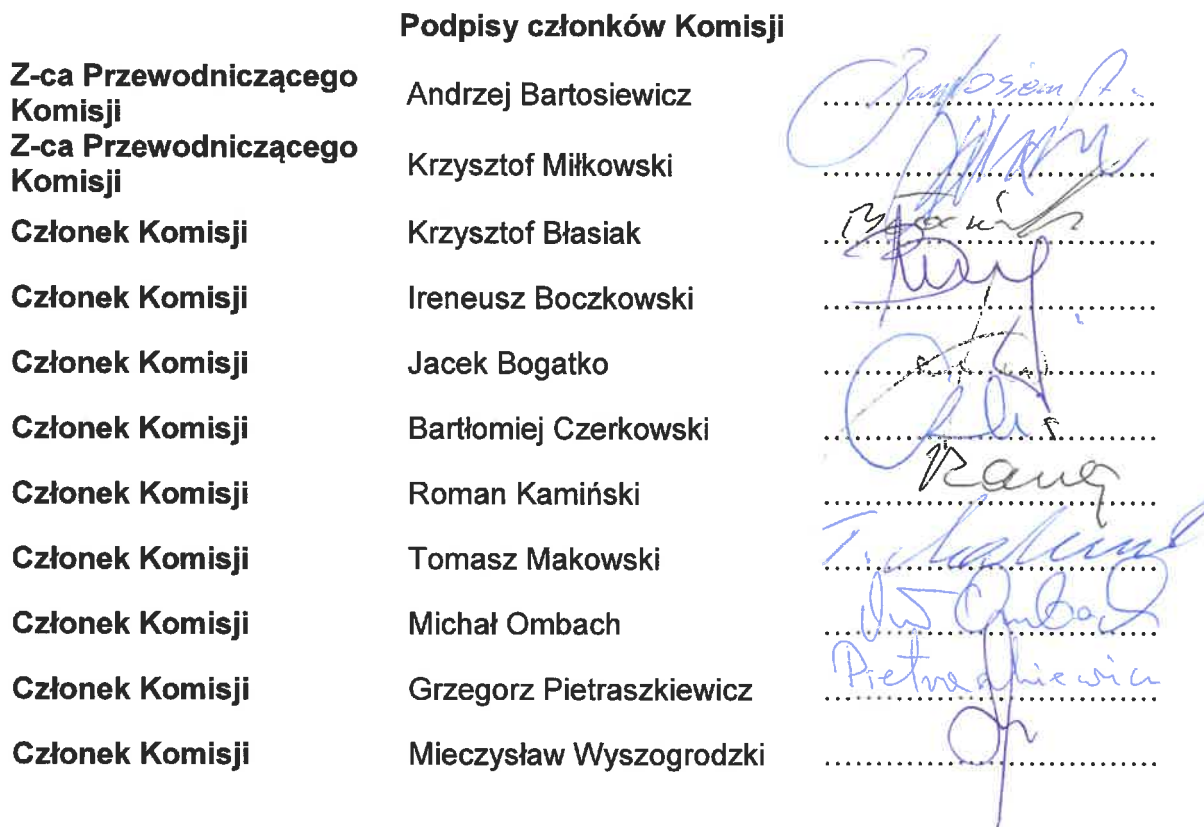 Podpisy członków Komisji
Z-ca Przewodniczącego
Komisji
Andrzej Bartosiewicz
Z-ca Przewodniczącego
Komisji
Krzysztof Miłkowski
Członek Komisji Krzysztof Błasiak
Członek Komisji Ireneusz Boczkowski
Członek Komisji Jacek Bogatko
Członek Komisji Bartłomiej Czerkowski
Członek Komisji Roman Kamiński
Członek Komisji Tomasz Makowski
Członek Komisji Michał Ombach Ombach
Członek Komisji Grzegorz Pietraszkiewicz
Członek Komisji Mieczysław Wyszogrodzki